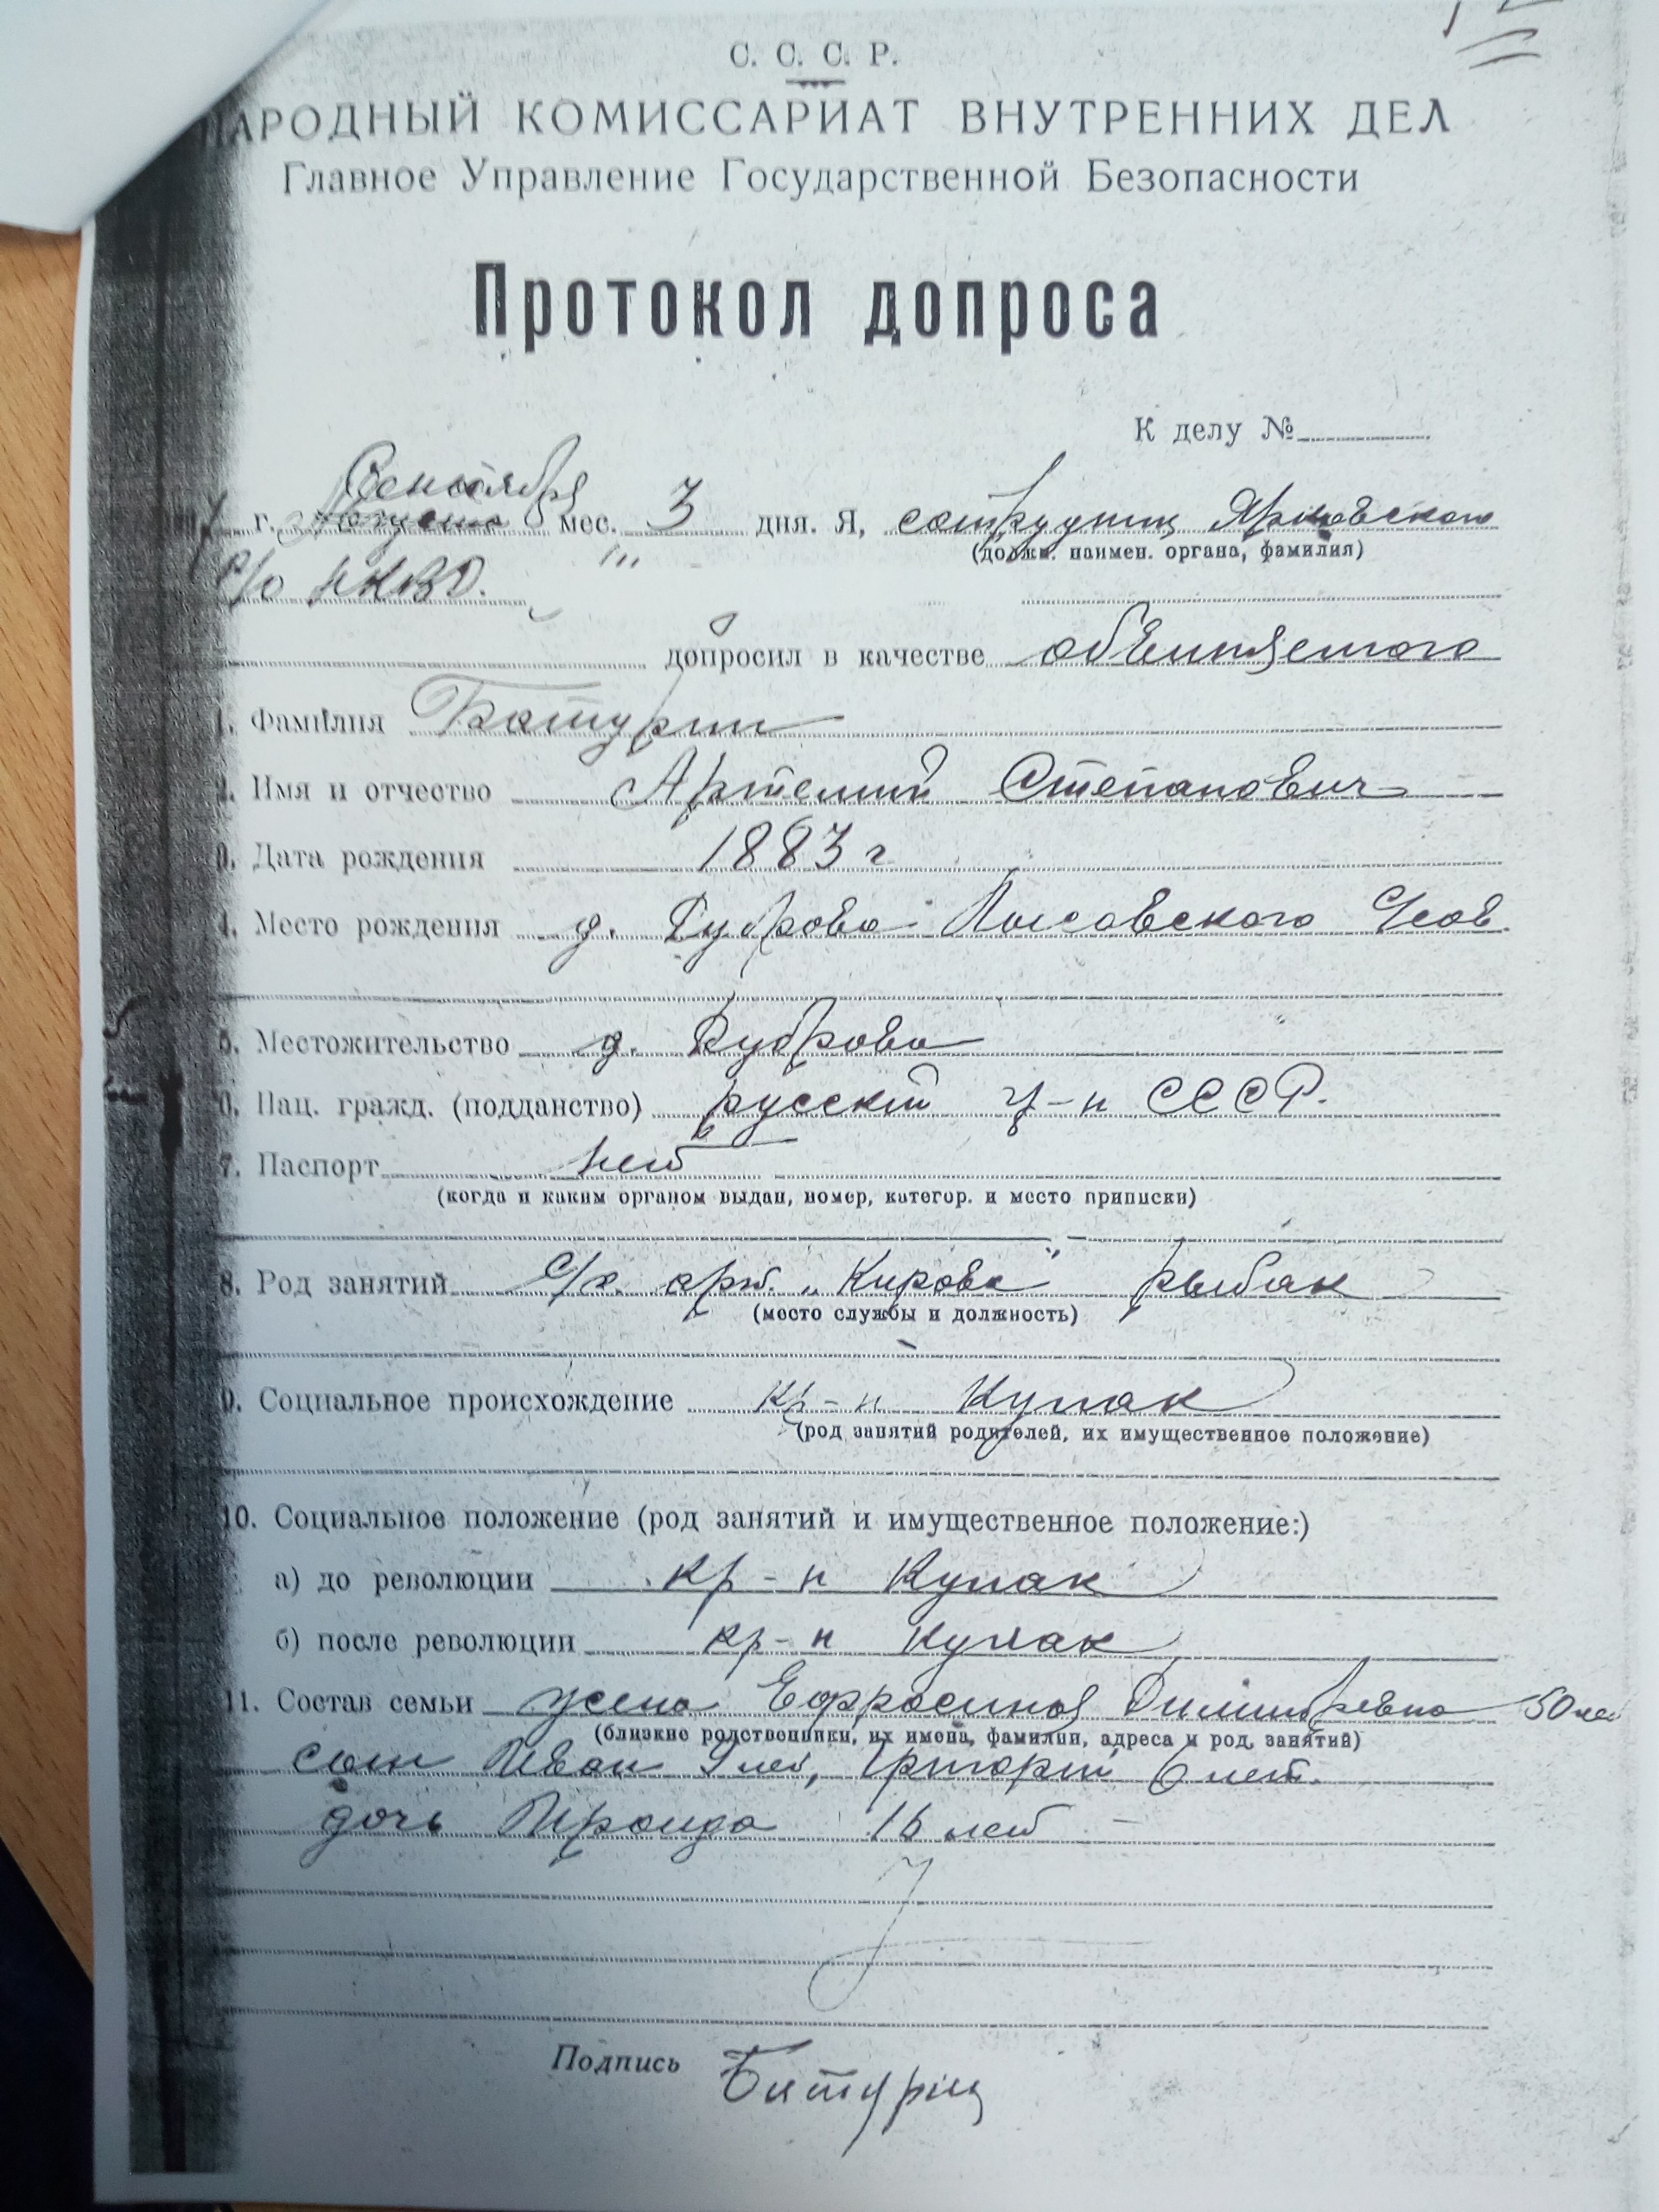 С. С. С. Р.
НАРОДНЫЙ КОМИССАРИАТ ВНУТРЕННИХ ДЕЛ
Главное Управление Государственной Безопасности
Протокол допроса
К делу №
Сентября
г. Августа мес. 3 дня. Я, сотрудник Ярковского
(должн. наимен. органа, фамилия)
Р/О НКВД.
допросил в качестве обвиняемого
1. Фамилия Батурин
2. Имя и отчество Артемий Степанович
3. Дата рождения 1883 г
4. Место рождения д. Дуброва
5. Местожительство д. Дуброва
6. Нац. гражд. (подданство) русский гр-н СССР.
7. Паспорт нет
(когда и каким органом выдан, номер, категор. и место приписки)
8. Род занятий С/х. арт. „Кирова" рыбак
(место службы и должность)
9. Социальное происхождение кр-н Кулак
(род занятий родителей, их имущественное положение)
10. Социальное положение (род занятий и имущественное положение:)
а) до революции кр-н Кулак
б) после революции кр-н кулак
11. Состав семьи жена Ефросиния Дмитревна 50 лет
(близкие родственники, их имена, фамилии, адреса и род занятий)
сын Иван 9 лет, Григорий 6 лет.
дочь Ираида 16 лет
Подпись Батурин